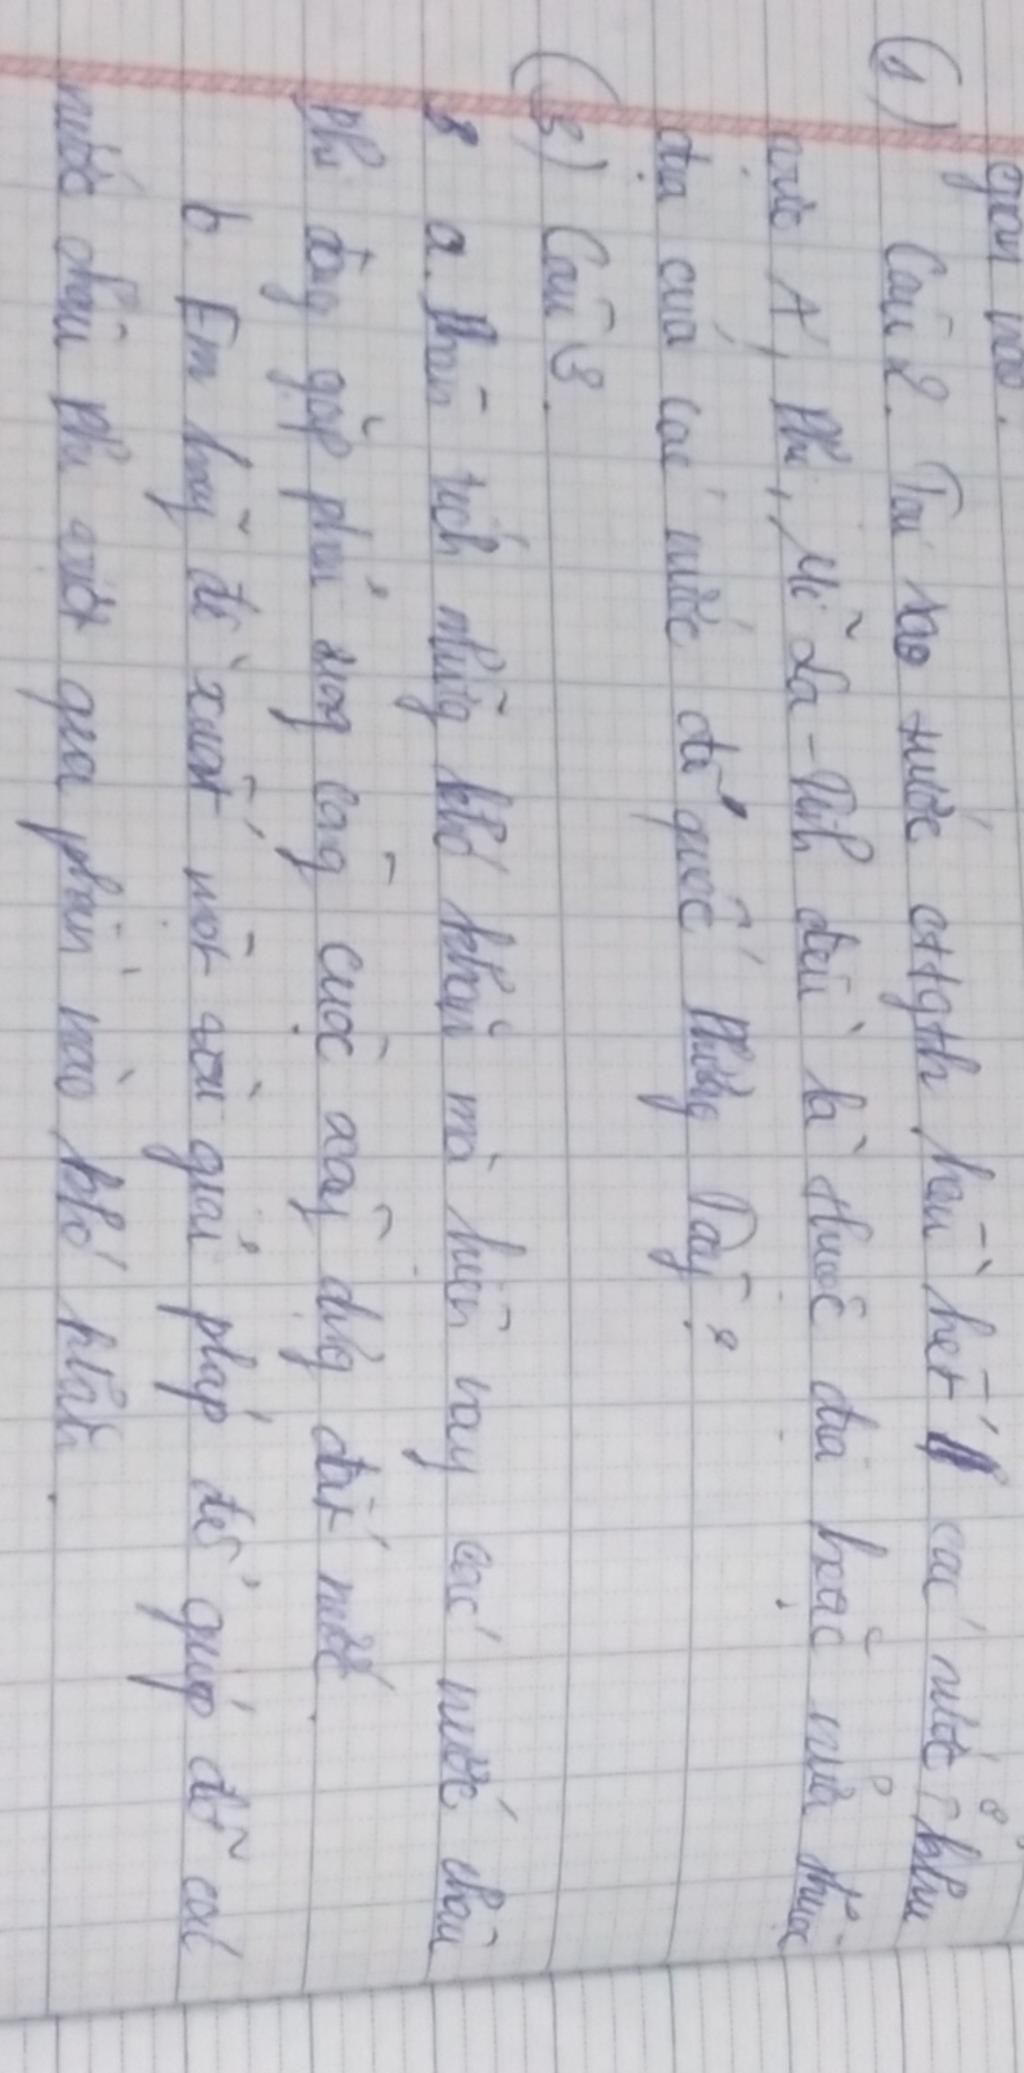 gian nào.
(1) Câu 2. Tại sao nước cttgth hầu hết các nước ở khu
vực Á, Phi, Mĩ La-Tinh đều là thuộc địa hoặc nửa thuộc
địa của các nước đế quốc Phương Tây?
(3) Câu 3.
a. Phân tích những khó khăn mà hiện nay các nước châu
Phi đang gặp phải trong công cuộc xây dựng đất nước.
b Em hãy đề xuất một vài giải pháp để giúp đỡ các
nước châu Phi vượt qua phần nào khó khăn.